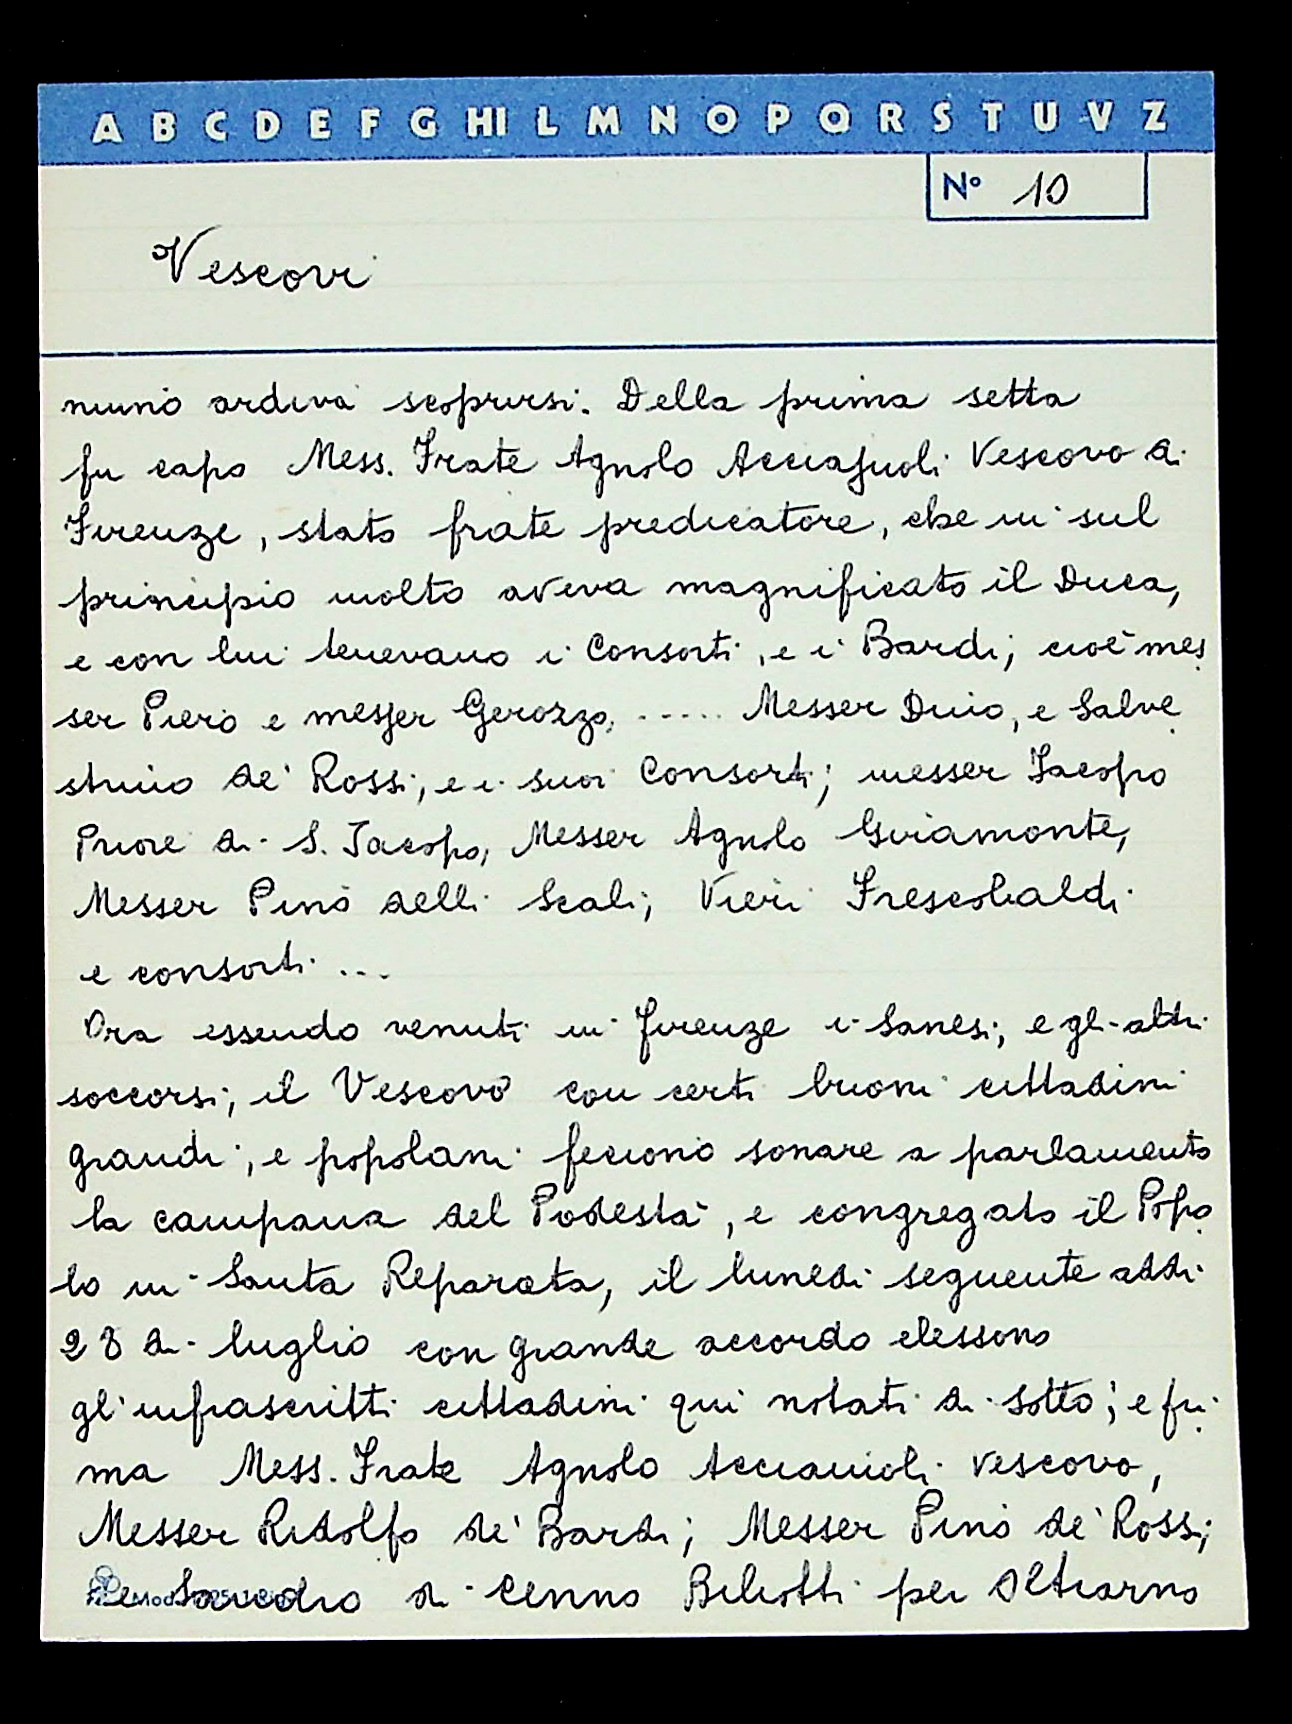 A B C D E F G HI L M N O P Q R S T U V Z
N° 10
Vescovi
niuno ardiva scoprirsi. Della prima setta
fu capo Mess. Frate Agnolo Acciajuoli Vescovo di
Firenze, stato frate predicatore, che in sul
principio molto aveva magnificato il Duca,
e con lui tenevano i Consorti, e i Bardi; cioè mes
ser Piero e messer Gerozzo, ..... Messer Duio, e Salve
strino de' Rossi, e i suoi Consorti; messer Iacopo
Priore di S. Jacopo, Messer Agnolo Giramonte,
Messer Pino delli Scali; Vieri Frescobaldi
e consorti ...
Ora essendo venuti in Firenze i Sanesi, e gli altri
soccorsi, il Vescovo con certi buoni cittadini
grandi, e popolani feciono sonare a parlamento
la campana del Podestà, e congregato il Popo
lo in Santa Reparata, il lunedi seguente addi
28 di luglio con grande accordo elessono
gl'infrascritti cittadini qui notati di sotto; e pri
ma Mess. Frate Agnolo Acciauioli vescovo,
Messer Ridolfo de' Bardi; Messer Pino de' Rossi;
e Sandro di Cenno Biliotti per Oltrarno